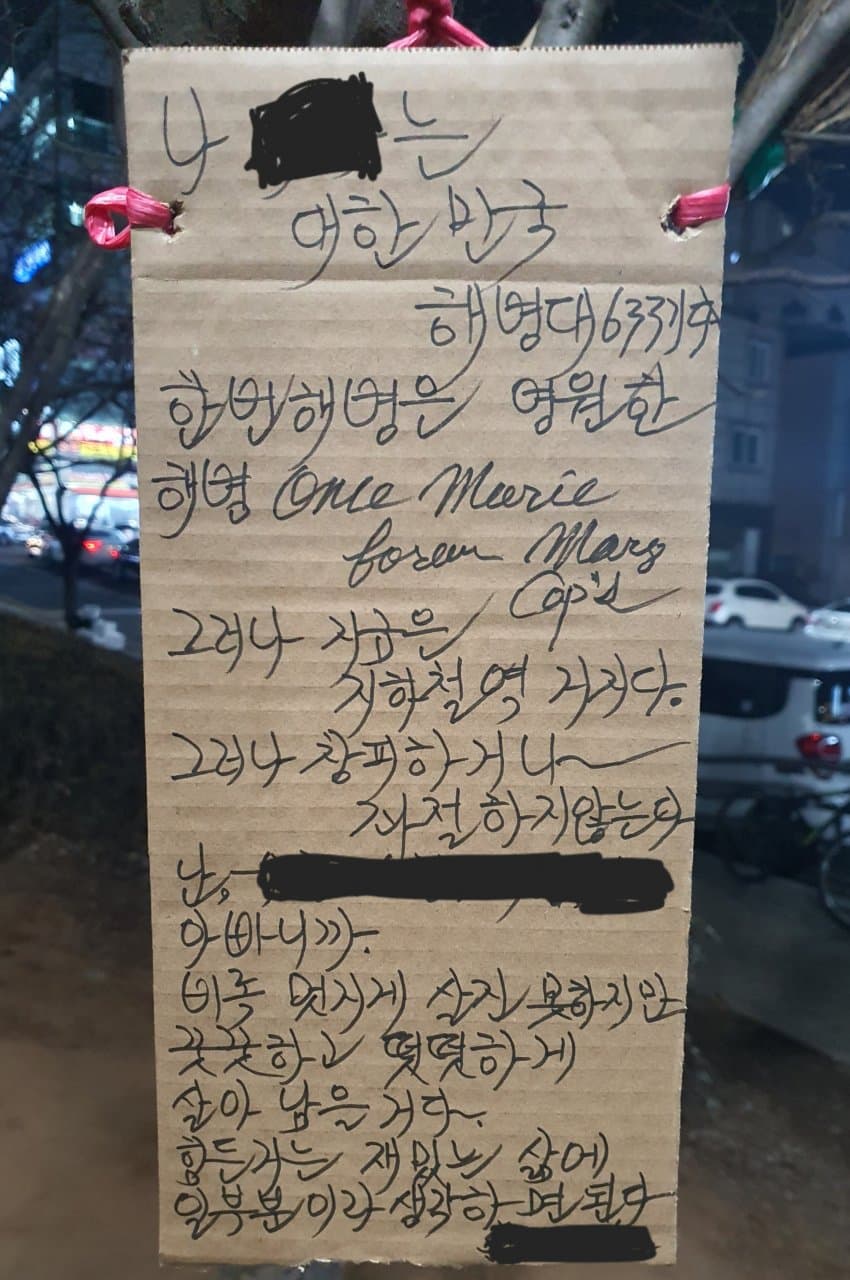 나 는
대한 민국
해병대 633기다
한번 해병은 영원한
해병 Once Marie
forever Mars
Cop's
그러나 지금은
지하철역 거지다.
그러나 창피하거나~
좌절하지않는다
난,
아빠니까.
비록 멋지게 살진 못하지만
꿋꿋하고 떳떳하게
살아 남을 거다.
힘든거는 재밌는 삶에
일부분이라 생각하면 된다